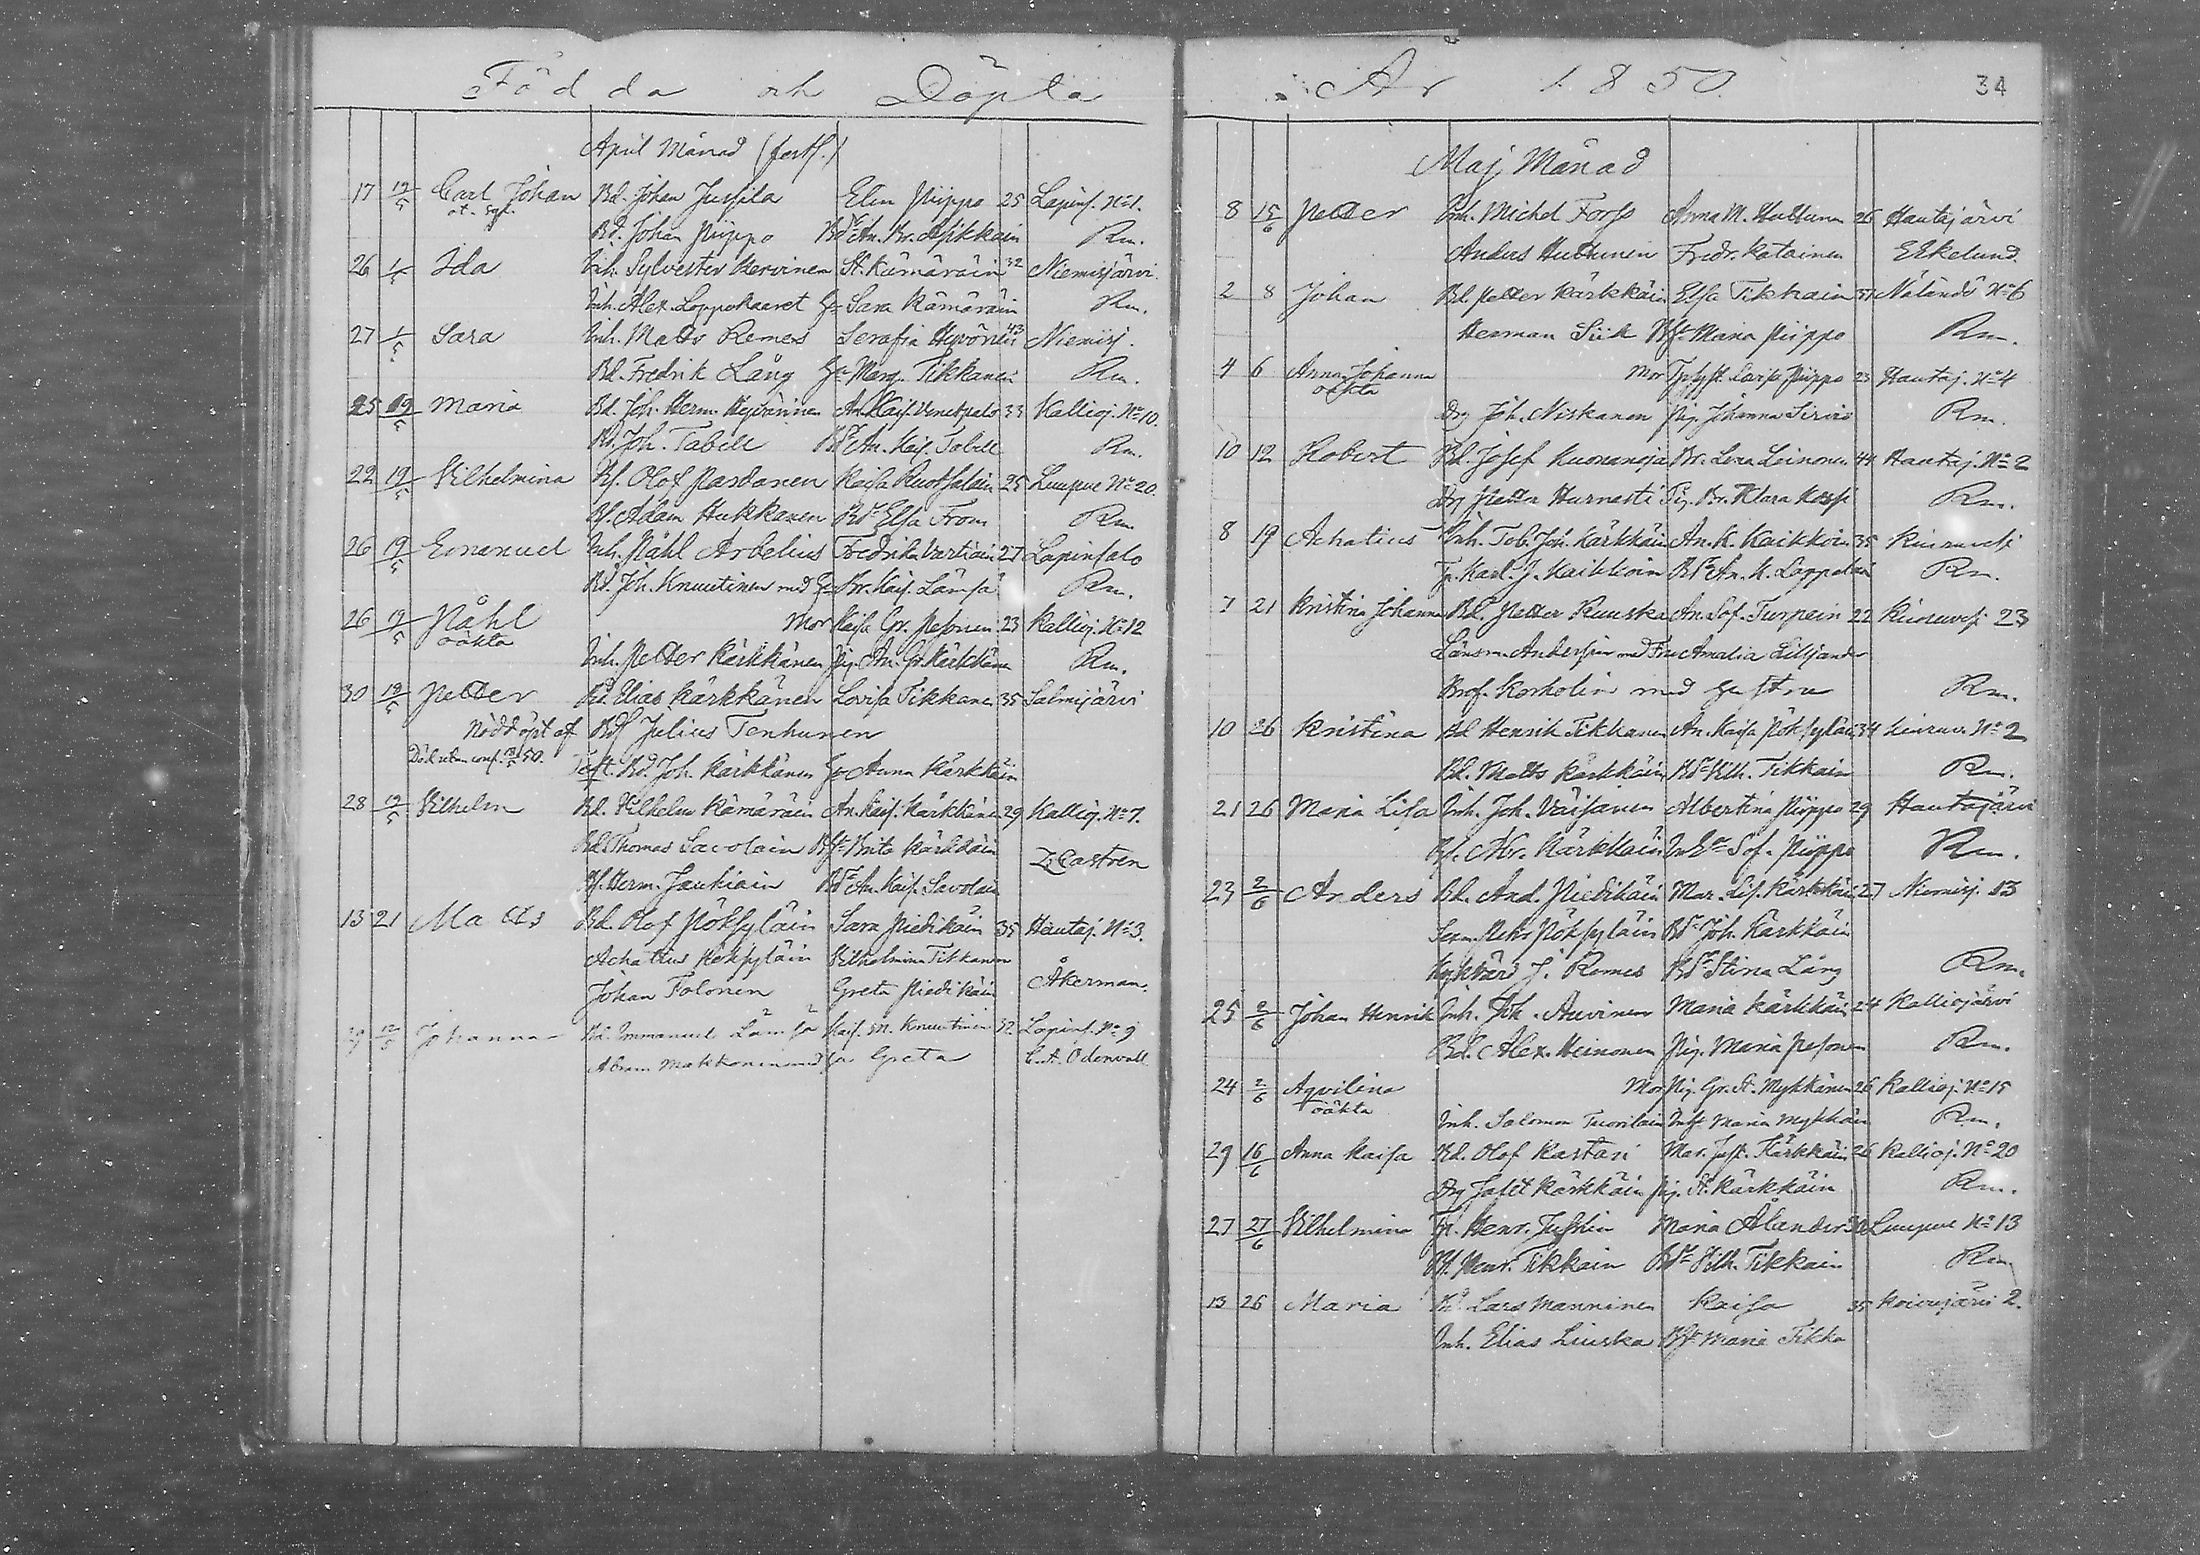 Födda och Döpta
April Månad (forts.)
17 19/5 Carl Johan Bd. Johan Jussila Elin Piippo 25 Lapins. No 1.
Bd. Johan Piippo Bde An. Br. Asikkain Rm.
26 1/5 Ida Inh. Sylvester Kervinen St. Kämäräin 32 Niemisjärvi
Inh. Alex. Loppokaaret Hu Sara Kämäräin Rm.
27 1/5 Sara Inh. Matts Remes Serafia Hyvönen 43 Niemisj.
Bd. Fredrik Lång Hu Marg. Tikkanen Rm.
25 19/5 Maria Bd. Joh. Herm. Hyvärinen An. Kais. Venetpalo 33 Kallioj. No 10.
Bd. Joh. Tabell Bde An. Kais. Tabell Rm.
22 19/5 Vilhelmina Bs. Olof Pardanen Kaisa Ruotsalain 25 Luupue No 20.
Bs. Adam Hukkanen Bde Elsa From Rm.
26 19/5 Emanuel Inh. Påhl Arbelius Fredrika Vartiain 27 Lapinsalo
Bd. Joh. Knuutinen med Hu Br. Kais. Lämsä Rm.
26 19/5 Påhl Mor Kaisa Gr. Pesonen 23 Kallioj. No 12
oäkta
Inh. Petter Kärkkänen Pig. An. Gr. Kärkkänen Rm.
30 19/5 Petter Bd. Elias Kärkkänen Lovisa Tikkanen 35 Salmijärvi
Nöddöpt af Bds Julius Tenhunen
Test. Bd. Joh. Kärkkänen Hu Anna Kärkkäin
28 19/5 Vilhelm Bd. Vilhelm Kämäräin An. Kais. Kärkkänen 29 Kallioj. No 7.
Bd. Thomas Savolain Bst Brita Kärkkäin
Z. Castren
Bs. Herm. Jauhiain Bde An. Kais. Savolain
13 21 Matts Bd. Olof Pöksyläin Sara Piedikäin 35 Hautaj. No 3.
Achatius Pöksyläin Vilhelmina Tikkanen
Johan Tolonen Greta Piedikäin Åkerman.
29 12/5 Johanna Bd. Immanuel Lämsä Kais. M. Knuutinen 32 Lapins. No 9
Abram Makkonen med Hu Greta C. A. Odenvall
År 1850. 34
Maj Månad
8 15/6 Petter Inh. Michel Forss Anna M. Huttunen 26 Hautajärvi
Anders Huttunen Fredr. Katainen Ekelund
2 8 Johan Bd. Petter Kärkkäin Elsa Tikkain 37 Näländö No 6
Herman Siik Bst Maria Piippo Rm.
4 6 Anna Johanna Mor Lovisa Piippo 23 Hautaj. No 4
oäkta
Drg Joh. Niskanen Pig. Johanna Sirviö Rm.
10 12 Robert Bd. Josef Kuonanoja Br. Lena Leinonen 44 Hautaj. No 2
Drg Petter Hurnasti Pig. Br. Klara Rm.
8 19 Achatius Inh. Tob. Joh. Kärkkäin An. K. Kaikkoin 35 Kiuruvesi
Tp. Karl J. Kaikkoin Bde An. K. Loppolain Rm.
7 21 Kristina Johanna Bd. Petter Ruuska An. Sof. Turpein 22 Kiuruvesi 23
Länsm. Andersin med Fru Amalia Lilljander
Prof. Korholin med Hustru Rm.
10 26 Kristina Bd. Henrik Tikkanen An. Kaisa Pöksyläin 34 Kiuruv. No 2
Bd. Matts Kärkkäin Bde Vilh. Tikkain Rm.
21 26 Maria Lisa Inh. Joh. Väisänen Albertina Piippo 29 Hautajärvi
Bs. Abr. Kärkkäin Sof. Piippo Rm.
23 2/6 Anders Bd. And. Piedikäin Mar. Lis. Kärkkäin 27 Niemisj. 13
Sexm. Petr. Pöksyläin Bde Joh. Kärkkäin
Kyrkvärd J. Remes Bde Stina Lång Rm.
25 2/6 Johan Henrik Inh. Joh. Auvinen Maria Kärkkäin 24 Kalliojärvi
Bd. Alex. Heinonen Pig. Maria Pesonen Rm.
24 2/6 Aqvilina Mor Pig. Gr. St. Mykkänen 26 Kallioj. No 15
oäkta
Inh. Salomon Tuovilain Inhst Maria Mykkäin Rm.
29 16/6 Anna Kaisa Bd. Olof Kastari Mar. Just. Kärkkäin 26 Kallioj. No 20
Drg Jafet Kärkkäin Pig. St. Kärkkäin Rm.
27 27/6 Vilhelmina Tp. Henr. Jusslin Maria Ålander 32 Luupue No 13
Bd. Henr. Tikkain Bde Vilh. Tikkain Rm.
13 26 Maria Bd. Lars Manninen Kaisa 35 Koivujärvi 2.
Inh. Elias Liuska Bst Maria Tikka